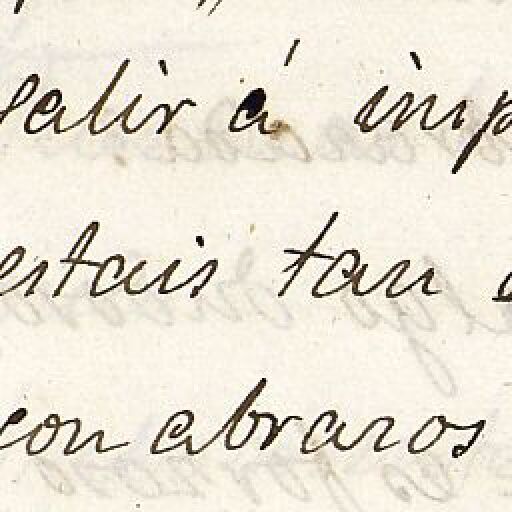 salir á imp
estais tan
con abrazos